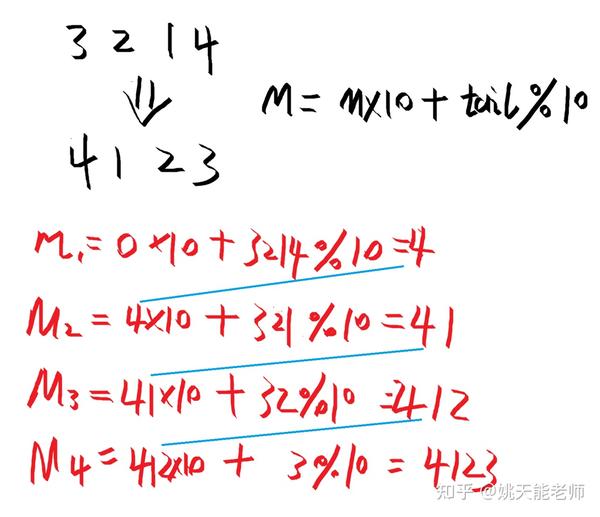 3214
⇓
M = M×10 + tail%10
4123
M₁ = 0×10 + 3214%10 = 4
M₂ = 4×10 + 321%10 = 41
M₃ = 41×10 + 32%10 = 412
M₄ = 412×10 + 3%10 = 4123
知乎 @姚天能老师